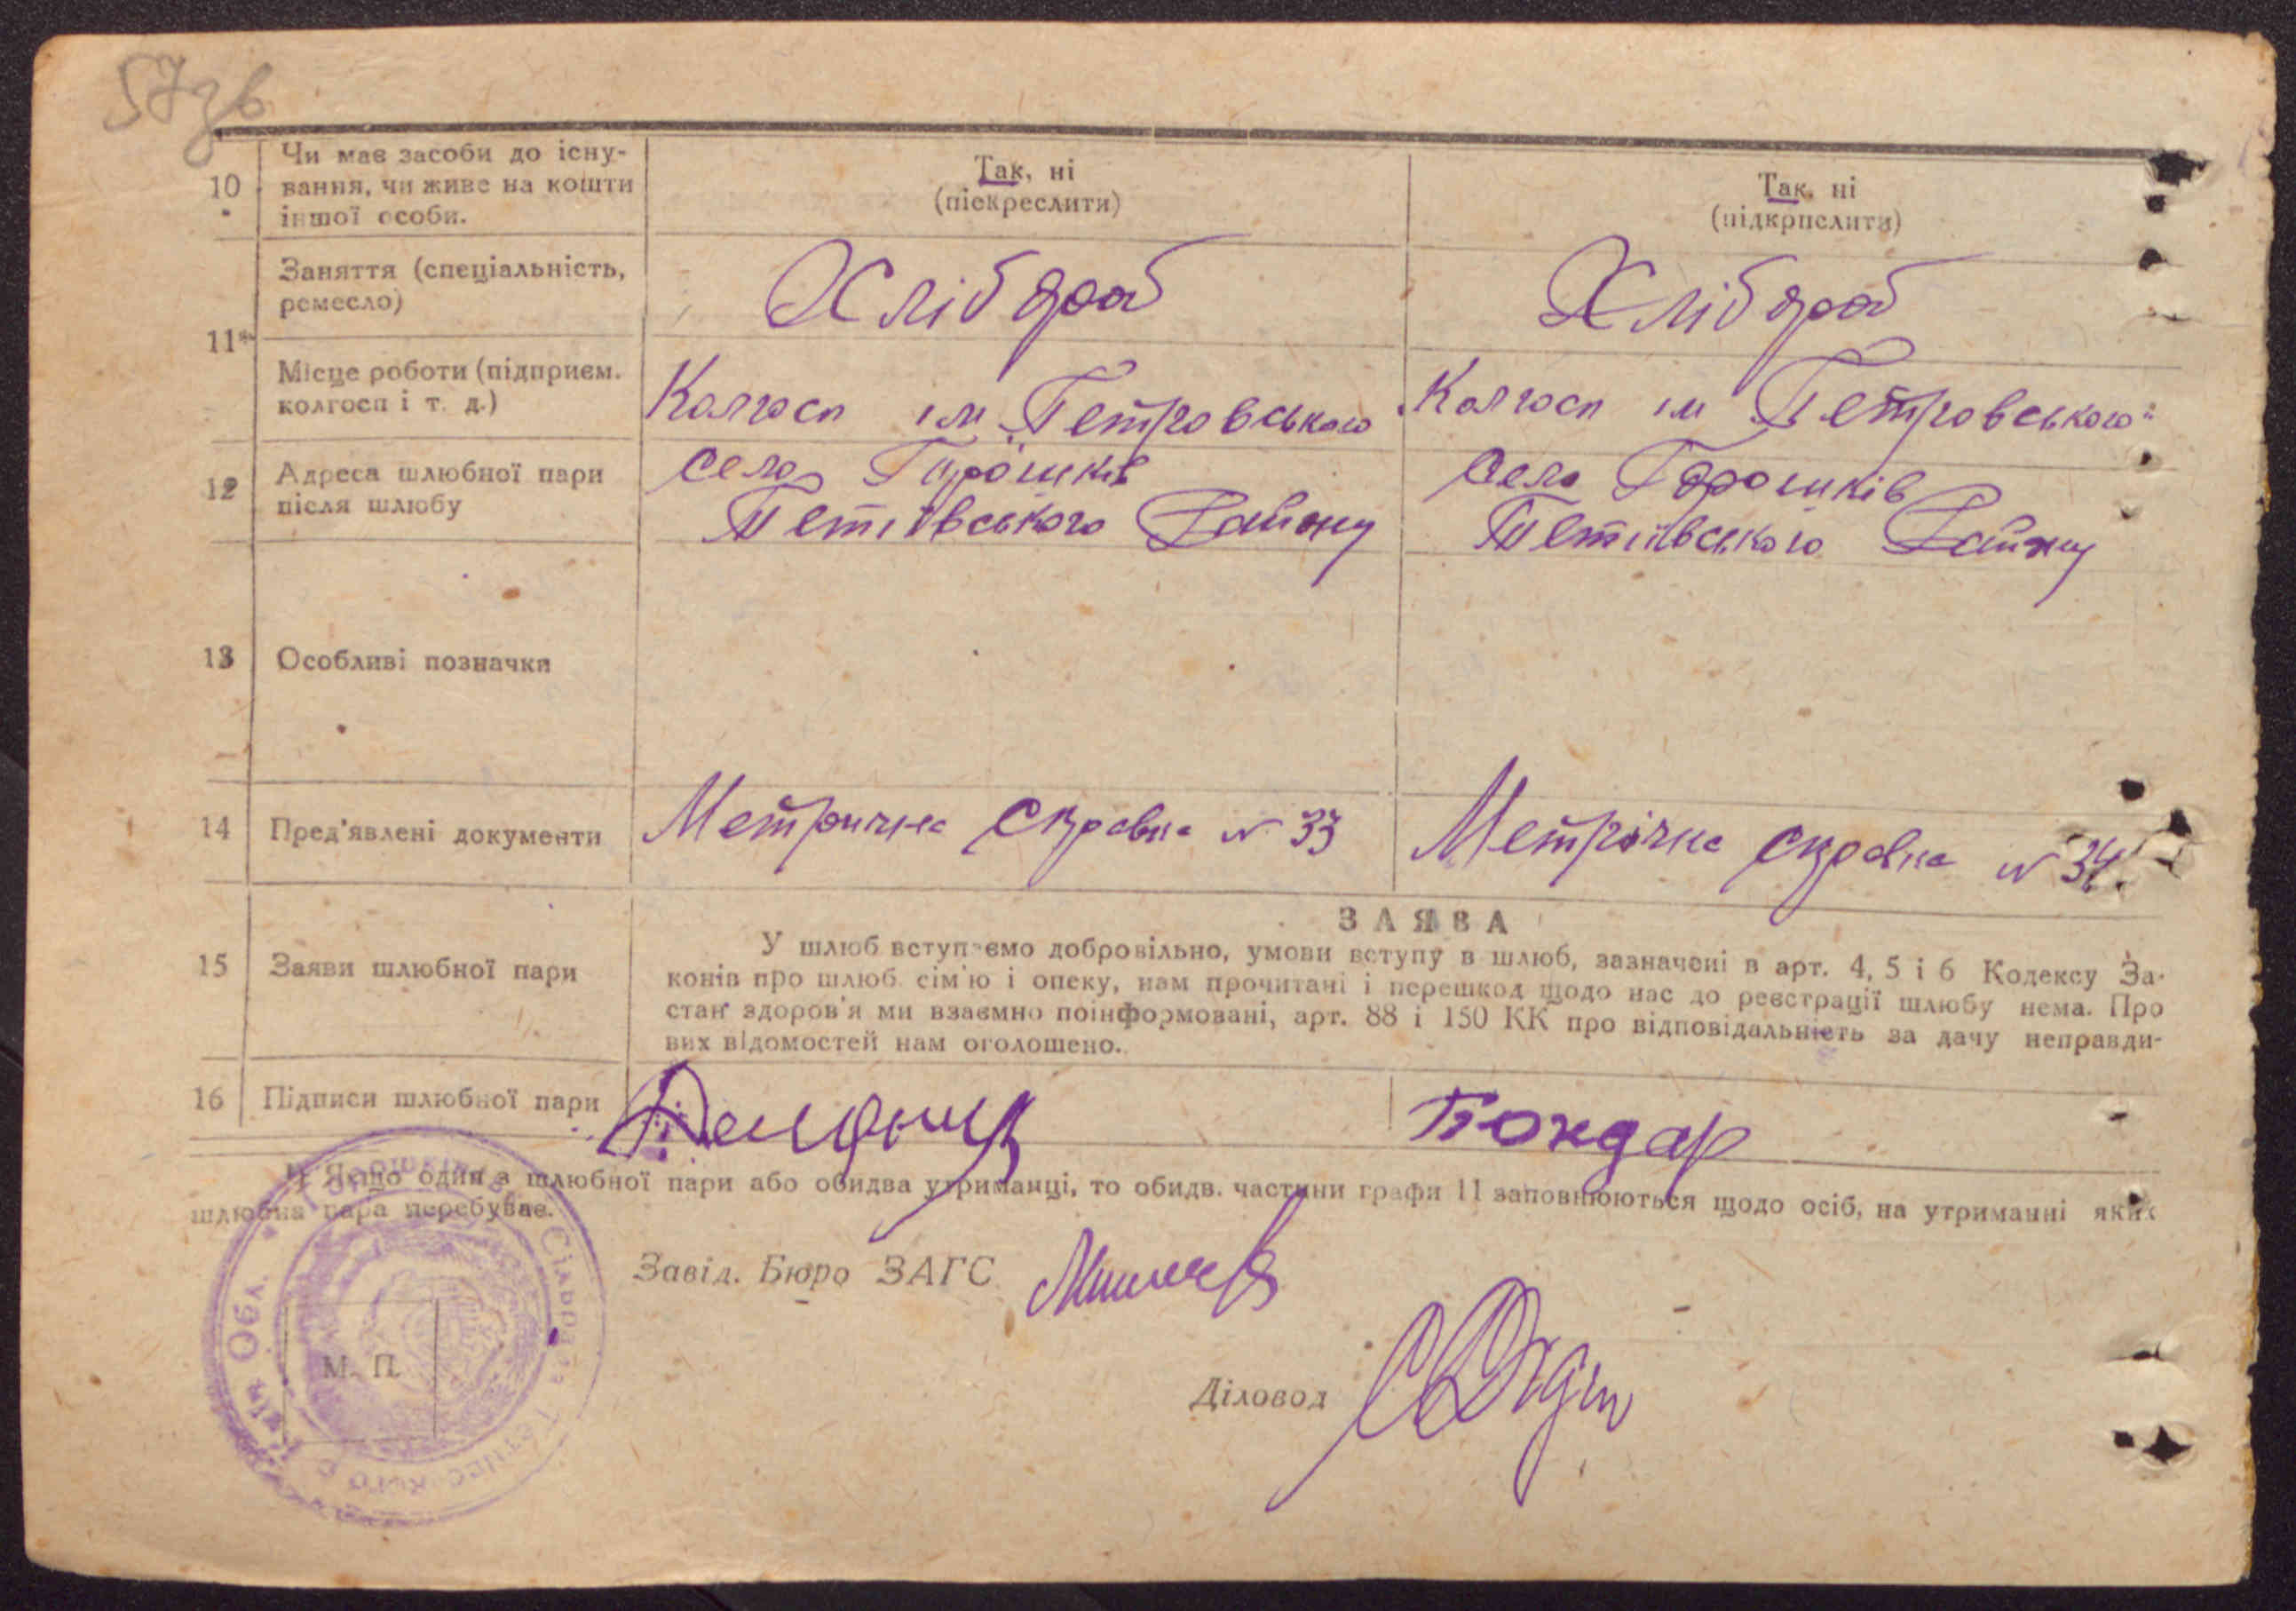 57зв
10
Чи має засоби до існу-
вання, чи живе на кошти
іншої особи.
Так, ні
(піекреслити)
Так, ні
(підкрпслити)
Заняття (спеціальність,
ремесло)
Хлібороб
Хлібороб
11*
Місце роботи (підприєм.
колгосп і т. д.)
Колгосп ім Петровського
Колгосп ім Петровського
12
Адреса шлюбної пари
після шлюбу
село Горошків
Тетіївського Району
село Горошків
Тетіївського Району
13
Особливі позначки
14
Пред'явлені документи
Метрична справка № 33
Метрічна справка № 34.
15
Заяви шлюбної пари
ЗАЯВА
У шлюб вступаємо добровільно, умови вступу в шлюб, зазначені в арт. 4, 5 і 6 Кодексу За-
конів про шлюб сім'ю і опеку, нам прочитані і перешкод щодо нас до реєстрації шлюбу нема. Про
стан здоров'я ми взаємно поінформовані, арт. 88 і 150 КК про відповідальність за дачу неправди-
вих відомостей нам оголошено.
16
Підписи шлюбної пари
Бондар
Якщо один з шлюбної пари або обидва утриманці, то обидв. частини графи 11 заповнюються щодо осіб, на утриманні яких
шлюбна пара перебуває.
Завід. Бюро ЗАГС
Діловод
М. П.